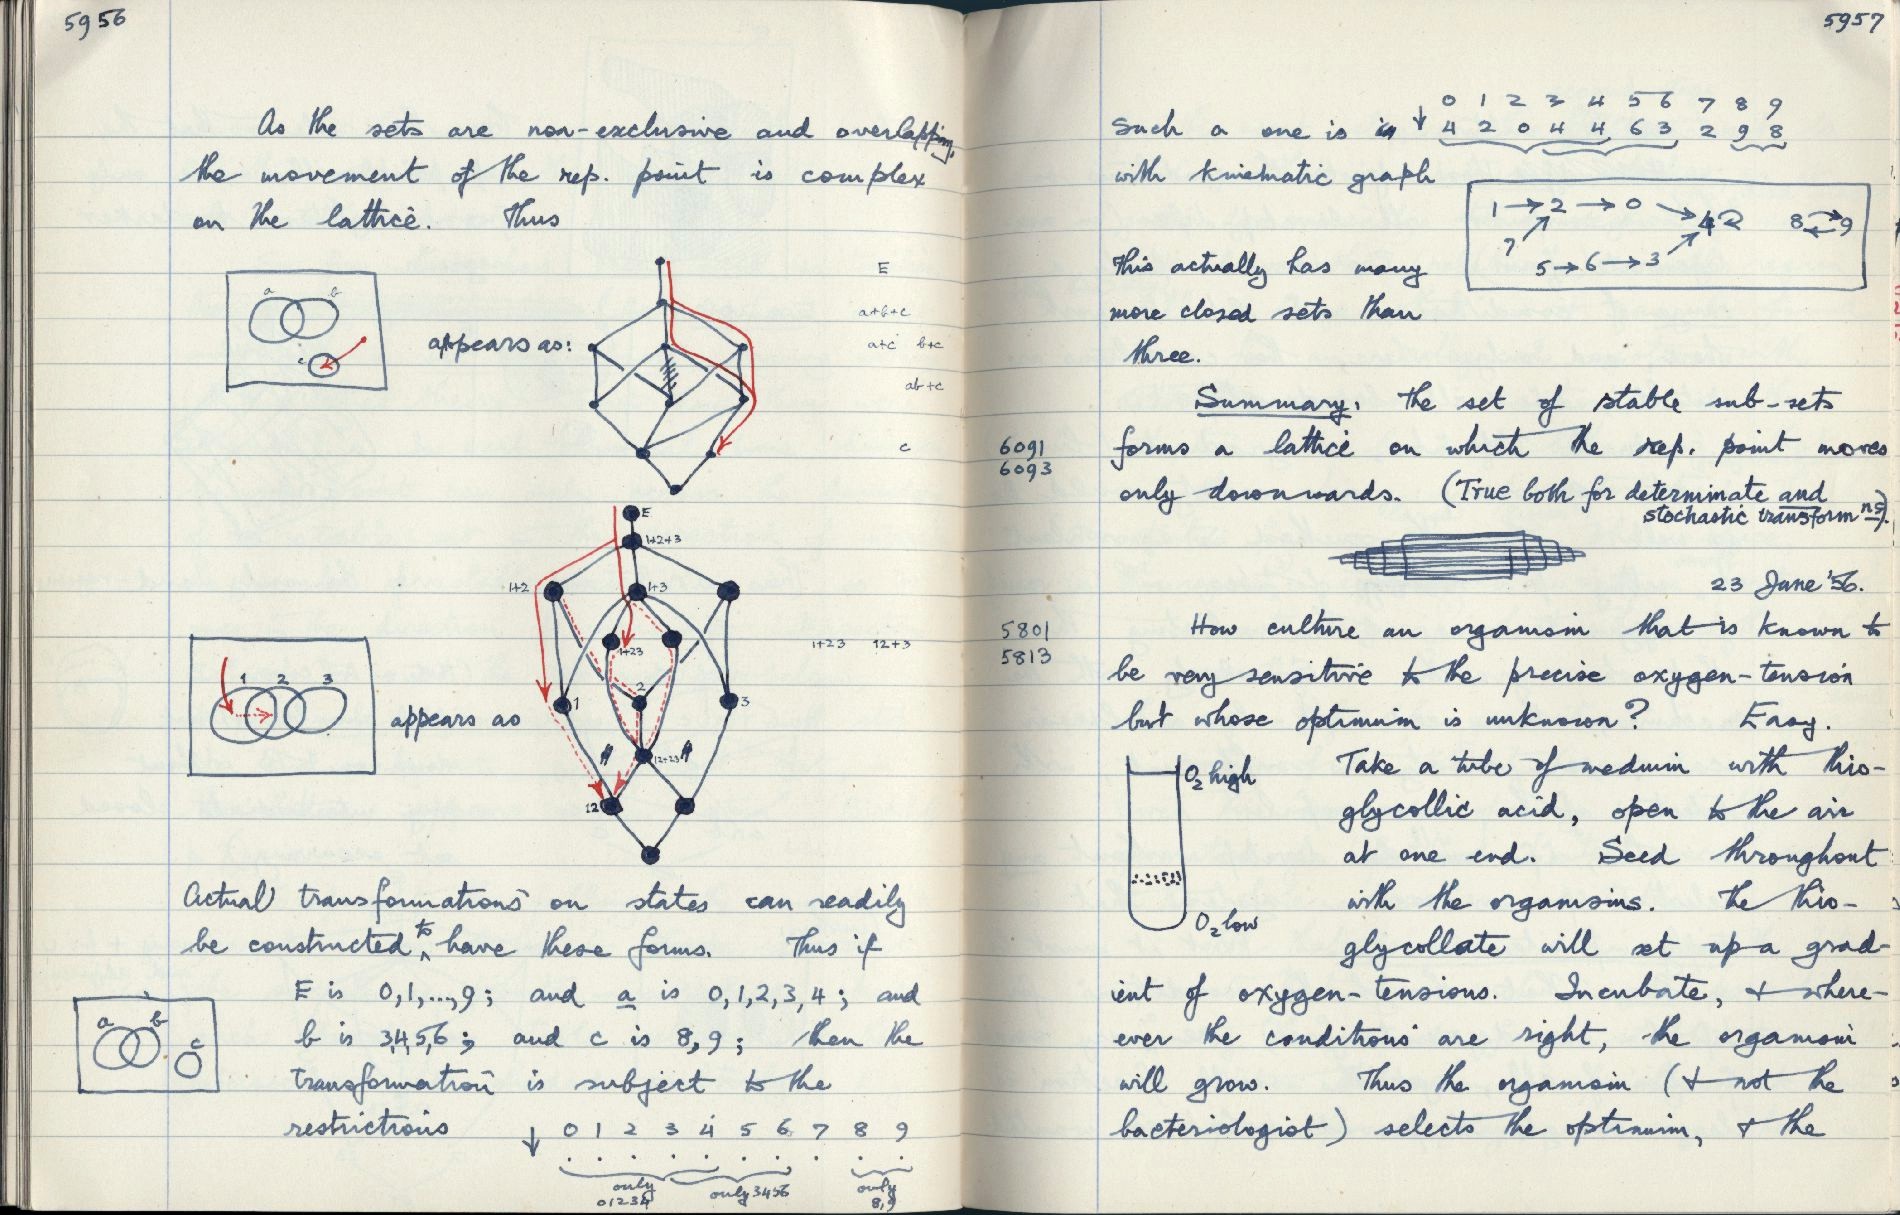 5956
As the sets are non-exclusive and overlapping,
the movement of the rep. point is complex
on the lattice. Thus
a b
c
appears as:
E
a+b+c
a+c b+c
ab+c
c
E
1+2+3
1+2 1+3
1+23
1+23 12+3
1 2 3
12+23
12
1 2 3
appears as
Actual transformations on states can readily
be constructed to have these forms. Thus if
E is 0,1,...,9; and a is 0,1,2,3,4; and
b is 3,4,5,6; and c is 8,9; then the
a b c
transformation is subject to the
restrictions ↓ 0 1 2 3 4 5 6 7 8 9
. . . . . . . . . .
only 01234 only 3456 only 8,9
5957
0 1 2 3 4 5 6 7 8 9
Such a one is in ↓ 4 2 0 4 4 6 3 2 9 8
with kinematic graph
1 → 2 → 0 → 4 8 ⇄ 9
7
5 → 6 → 3
This actually has many
more closed sets than
three.
Summary: The set of stable sub-sets
6091
forms a lattice on which the rep. point moves
6093
only downwards. (True both for determinate and
stochastic transformns).
23 June '56.
5801
How culture an organism that is known to
5813
be very sensitive to the precise oxygen-tension
but whose optimum is unknown? Easy.
O2 high
Take a tube of medium with thio-
glycollic acid, open to the air
at one end. Seed throughout
with the organisms. The thio-
O2 low
glycollate will set up a grad-
ient of oxygen-tensions. Incubate, & where-
ever the conditions are right, the organism
will grow. Thus the organism (& not the
bacteriologist) selects the optimum, & the